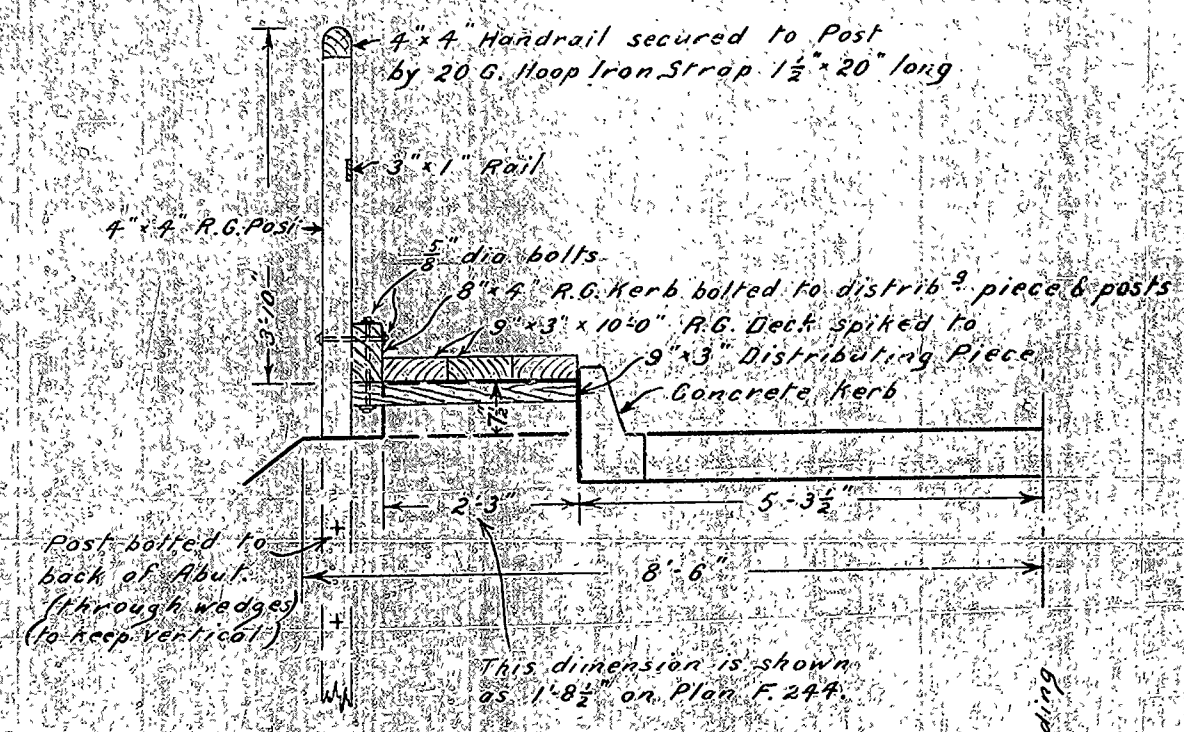 4"x 4" Handrail secured to Post
by 20 G. Hoop Iron Strap 1½"x 20" long
3"x 1" Rail
4"x 4" R.G. Post
⅝" dia bolts
8"x 4" R.G. Kerb bolted to distrib⁹ piece & posts
3'-10"
9"x 3"x 10'-0" R.G. Deck spiked to
9"x 3" Distributing Piece
Concrete Kerb
7½"
2'-3"
5-3½"
Post bolted to
back of Abut.
(through wedges)
(to keep vertical)
8'-6"
This dimension is shown
as 1'-8½" on Plan F.244.
ding